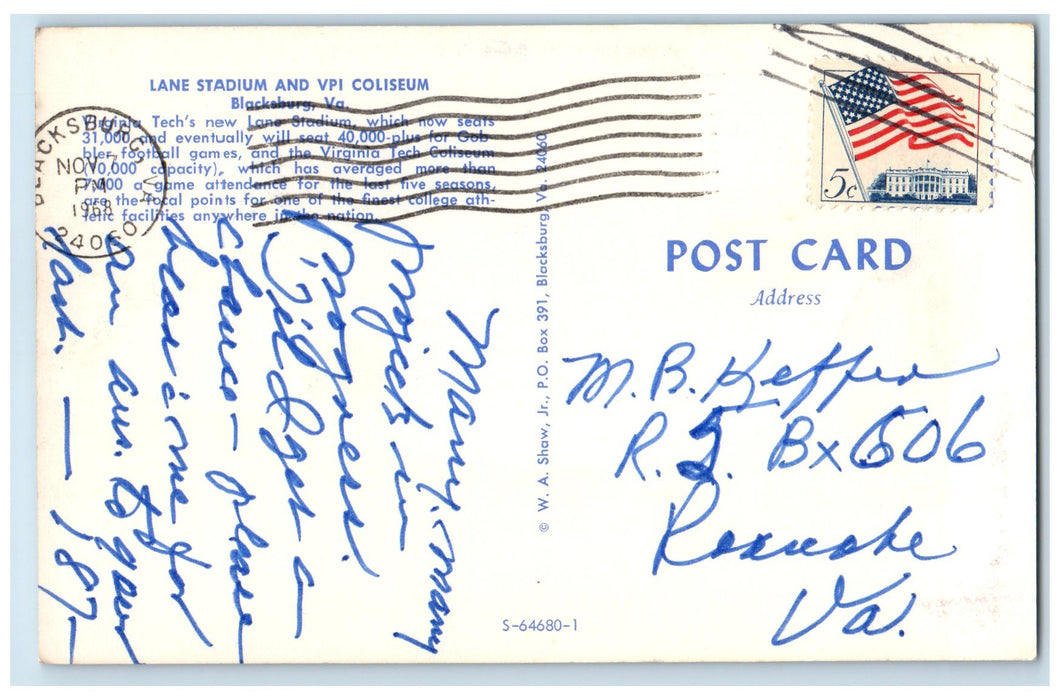 LANE STADIUM AND VPI COLISEUM
Blacksburg, Va.
Virginia Tech's new Lane Stadium, which now seats
31,000 and eventually will seat 40,000-plus for Gob-
bler football games, and the Virginia Tech Coliseum
(10,000 capacity), which has averaged more than
7,400 a game attendance for the last five seasons,
are the focal points for one of the finest college ath-
letic facilities anywhere in the nation.
BLACKSBURG, VA.
NOV 7
PM
1968
24060
Many, many
projects in
progress!
'Til I get a
chance — please
hear & me for
an ans. to your
Card. — 187-
© W. A. Shaw, Jr., P.O. Box 391, Blacksburg, Va. 24060
S-64680-1
5c
POST CARD
Address
M. B. Keffer
R. 5. Bx 606
Roanoke
Va.